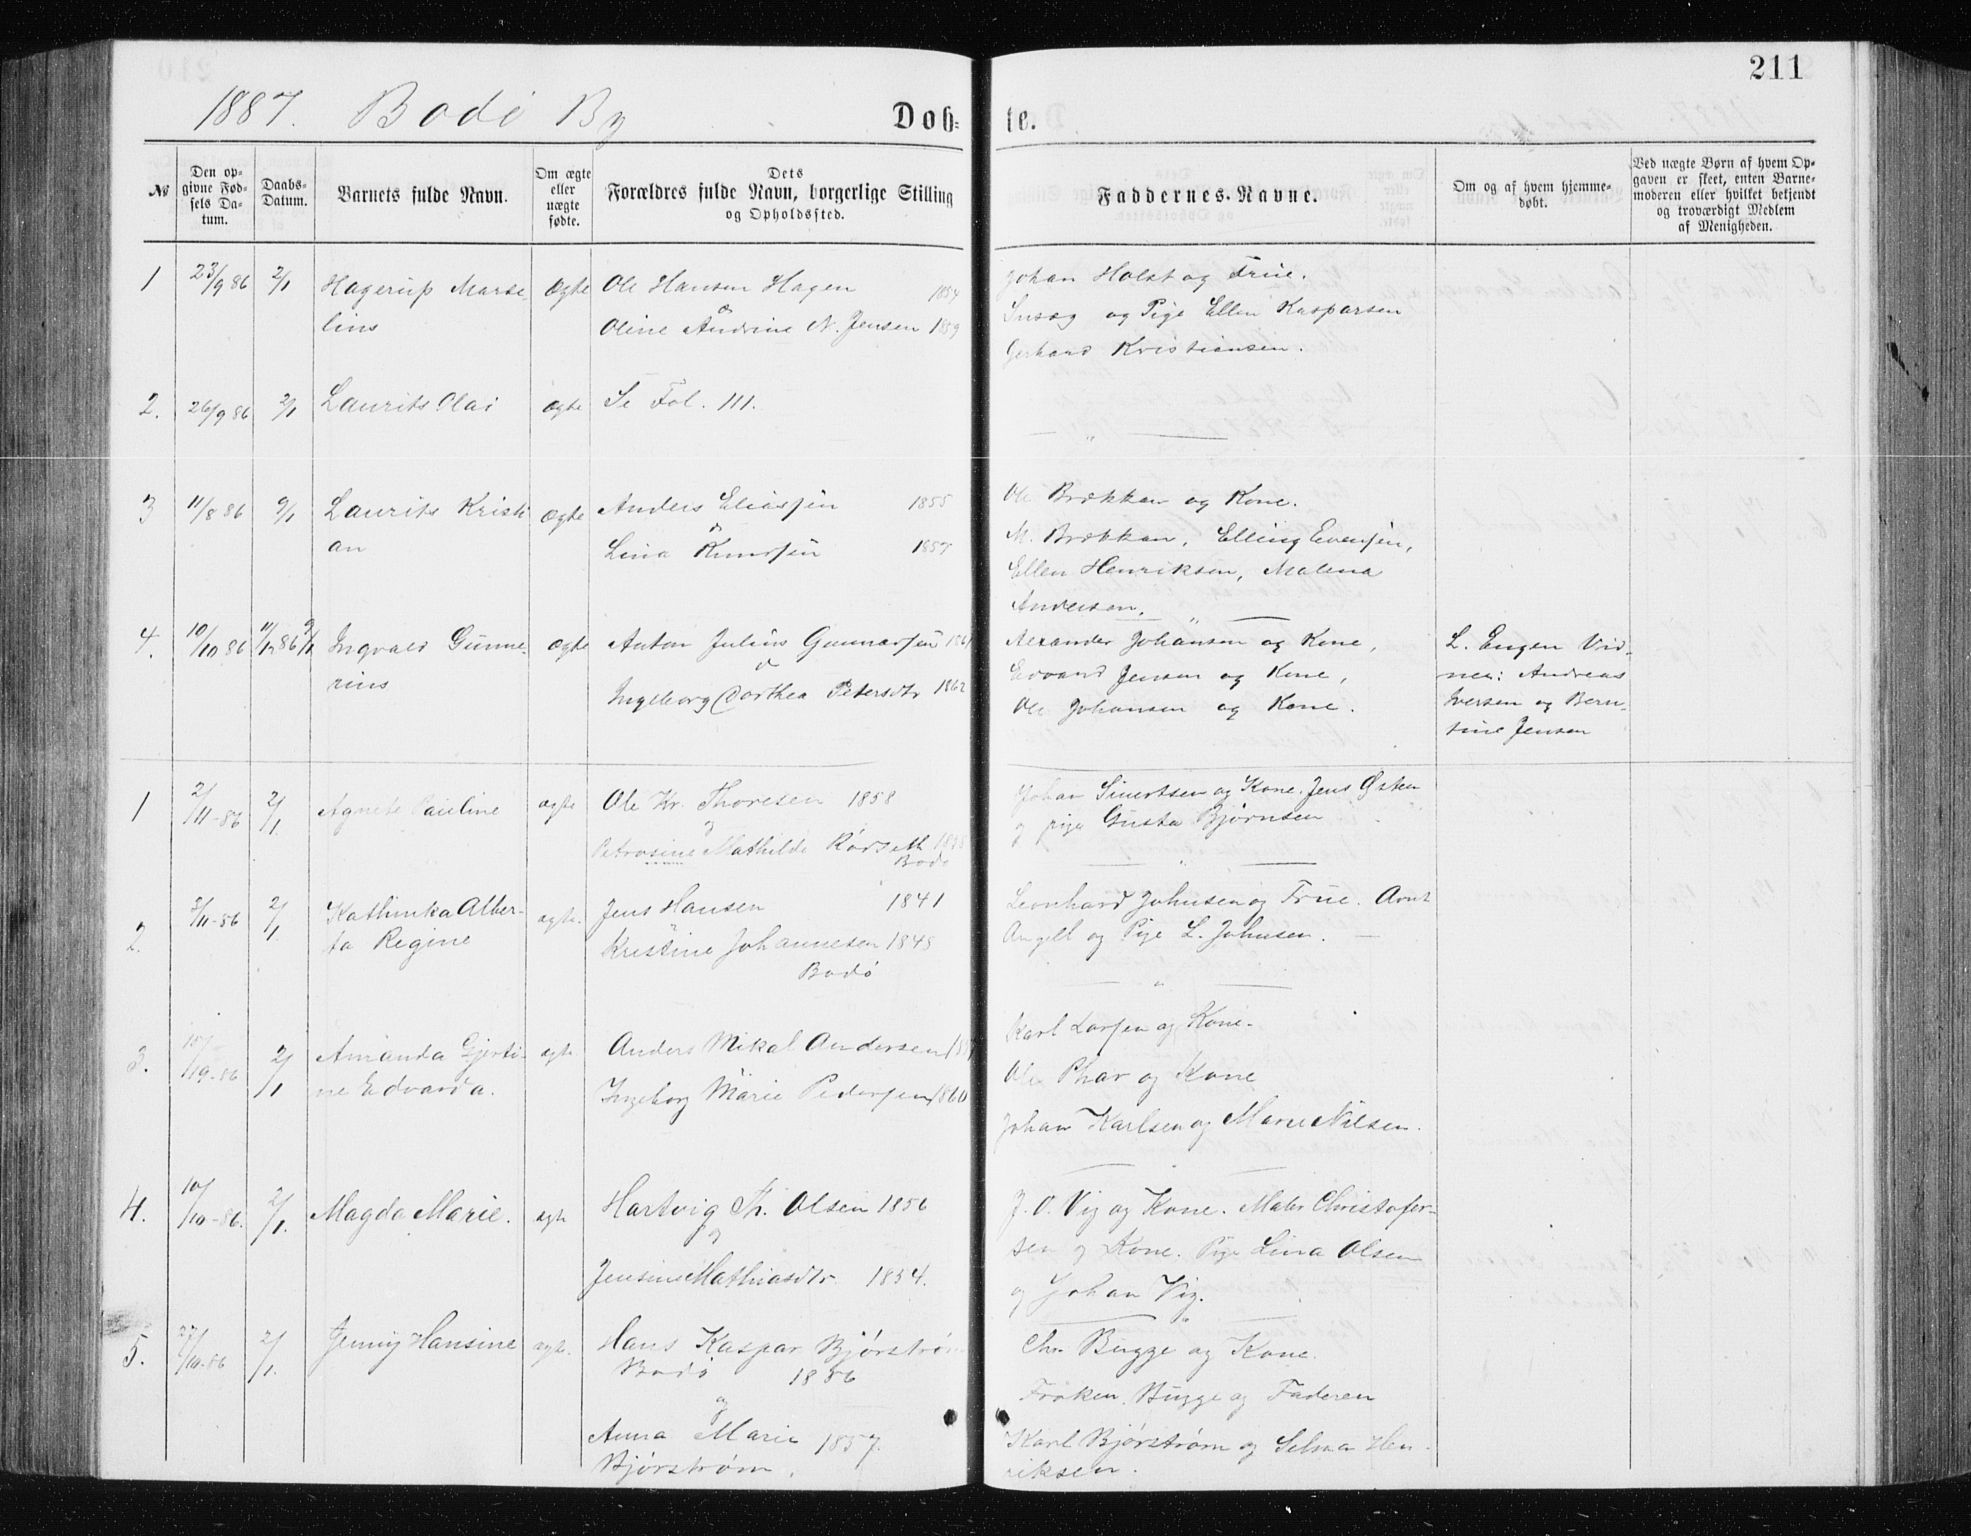 211
1887. Bodø By
Døb= te.
№
Den op-
givne Fød-
sels Da-
tum.
Daabs-
Datum.
Barnets fulde Navn.
Om ægte
eller
uægte
fødte.
Dets
Forældres fulde Navn, borgerlige Stilling
og Opholdssted.
Faddernes Navne.
Om og af hvem hjemme-
døbt.
Ved uægte Børn af hvem Op-
gaven er skeet, enten Barne-
moderen eller hvilket bekjendt
og troværdigt Medlem
af Menigheden.
1 23/9 86 2/1 Hagerup Marse Ægte Ole Hansen Hagen 1854
lius og
Oline Andrine N. Jensen 1859
Johan Holst og Frue.
og Pige Ellen Kasparsen
Gerhard Kristiansen.
2. 26/9 86 2/1 Laurits Olai ægte Se Fol. 111.
— " —
3 11/8 86 9/1 Laurits Kristi Ægte Anders Eliassen 1855
an og
Lina Knudsen 1857
Ole Brækkan og Kone.
M. Brækkan, Elling Evensen,
Ellen Henriksen, Malena
Andersen.
4. 10/10 86 11/12 86 9/1 Ingvald Gunne- Ægte Anton Julius Gunnarsen
rius og
Ingeborg Dorthea Petersdtr 1862
Alexander Johansen og Kone,
Edvard Jensen og Kone,
Ole Johansen og Kone.
L. Engen Vid-
ner: Andreas
Iversen og Bern-
tine Jensen
1 2/11-86 2/1. Agnete Pauline ægte Ole Kr. Thoresen 1858
og
Petrosine Mathilde Rørseth
Bodø
Johan Sivertsen og Kone. Jens Østen
og pige Gusta Bjørnsen
— " —
2. 3/11-86 2/1. Kathinka Alber- ægte. Jens Hansen 1841
ta Regine
Kristine Johannesen 1848
Bodø
Leonhard Johnsen og Frue. Arnt
Angell og Pige L. Johnsen. —
— " —
3. 10/ 86 2/1 Amanda Gjerti- ægte Anders Mikal Andersen
ne Edvarda. Ingeborg Marie Pedersen 1860
Karl Larsen og Kone.
Ole Phar og Kone
Johan Karlsen og Marie Nilsen.
4. 10/10-86. 2/1. Magda Marie. ægte Hartvig Th. Olsen 1856
og
Jensine Mathiasdtr 1854.
J. O. Vig og Kone. Christofer-
sen og Kone. Pige Lina Olsen
og Johan Vig.
5. 27/10-86 2/1. Jenny Hansine ægte. Hans Kaspar Bjørstrøm
Bodø 1856
og
Anna Marie 1857.
Bjørstrøm.
Chr. Bugge og Kone.
Frøken Bugge og Faderen
Karl Bjørstrøm og Selma Hen-
riksen.